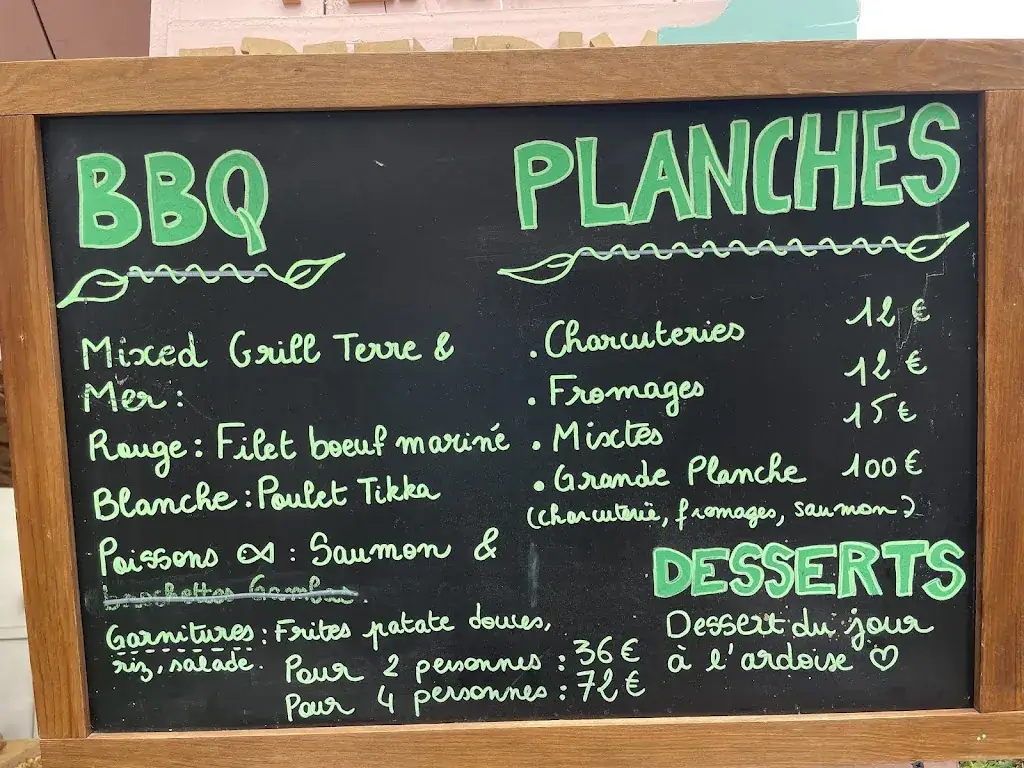 BBQ
Mixed Grill Terre &
Mer :
Rouge : Filet boeuf mariné
Blanche : Poulet Tikka
Poissons : Saumon &
brochettes Gambas.
Garnitures : Frites patate douces,
riz, salade.
Pour 2 personnes : 36 €
Pour 4 personnes : 72 €
PLANCHES
. Charcuteries 12 €
. Fromages 12 €
. Mixtes 15 €
. Grande Planche 100 €
(charcuterie, fromages, saumon)
DESSERTS
Dessert du jour
à l'ardoise ♡